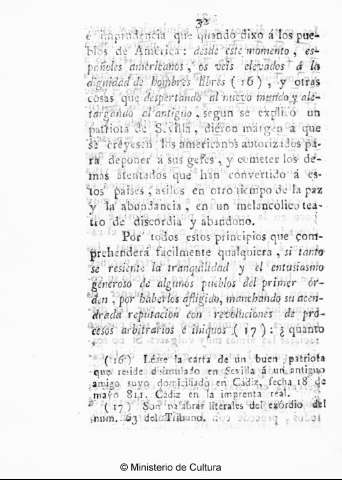 32
é imprudencia que quando dixo á los pue-
blos de América: desde este momento, es-
pañoles americanos, os veis elevados á la
dignidad de hombres libres (16), y otras
cosas que despertando al nuevo mundo y ale-
targando al antiguo, segun se explicó un
patriota de Sevilla, dieron margen á que
se creyesen los americanos autorizados pa-
ra deponer á sus gefes, y cometer los de-
mas atentados que han convertido á es-
tos paises, asilos en otro tiempo de la paz
y la abundancia, en un melancólico tea-
tro de discordia y abandono.
Por todos estos principios que com-
prehenderá facilmente qualquiera, si tanto
se resiente la tranquilidad y el entusiasmo
generoso de algunos pueblos del primer ór-
den, por haberlos afligido, manchando su acen-
drada reputacion con revoluciones de pro-
cesos arbitrarios é iniquos (17): ¿quanto
(16) Léase la carta de un buen patriota
que reside disimulado en Sevilla á un antiguo
amigo suyo domiciliado en Cádiz, fecha 18 de
mayo 811. Cádiz en la imprenta real.
(17) Son palabras literales del exórdio del
num. 63 del Tribuno.
© Ministerio de Cultura